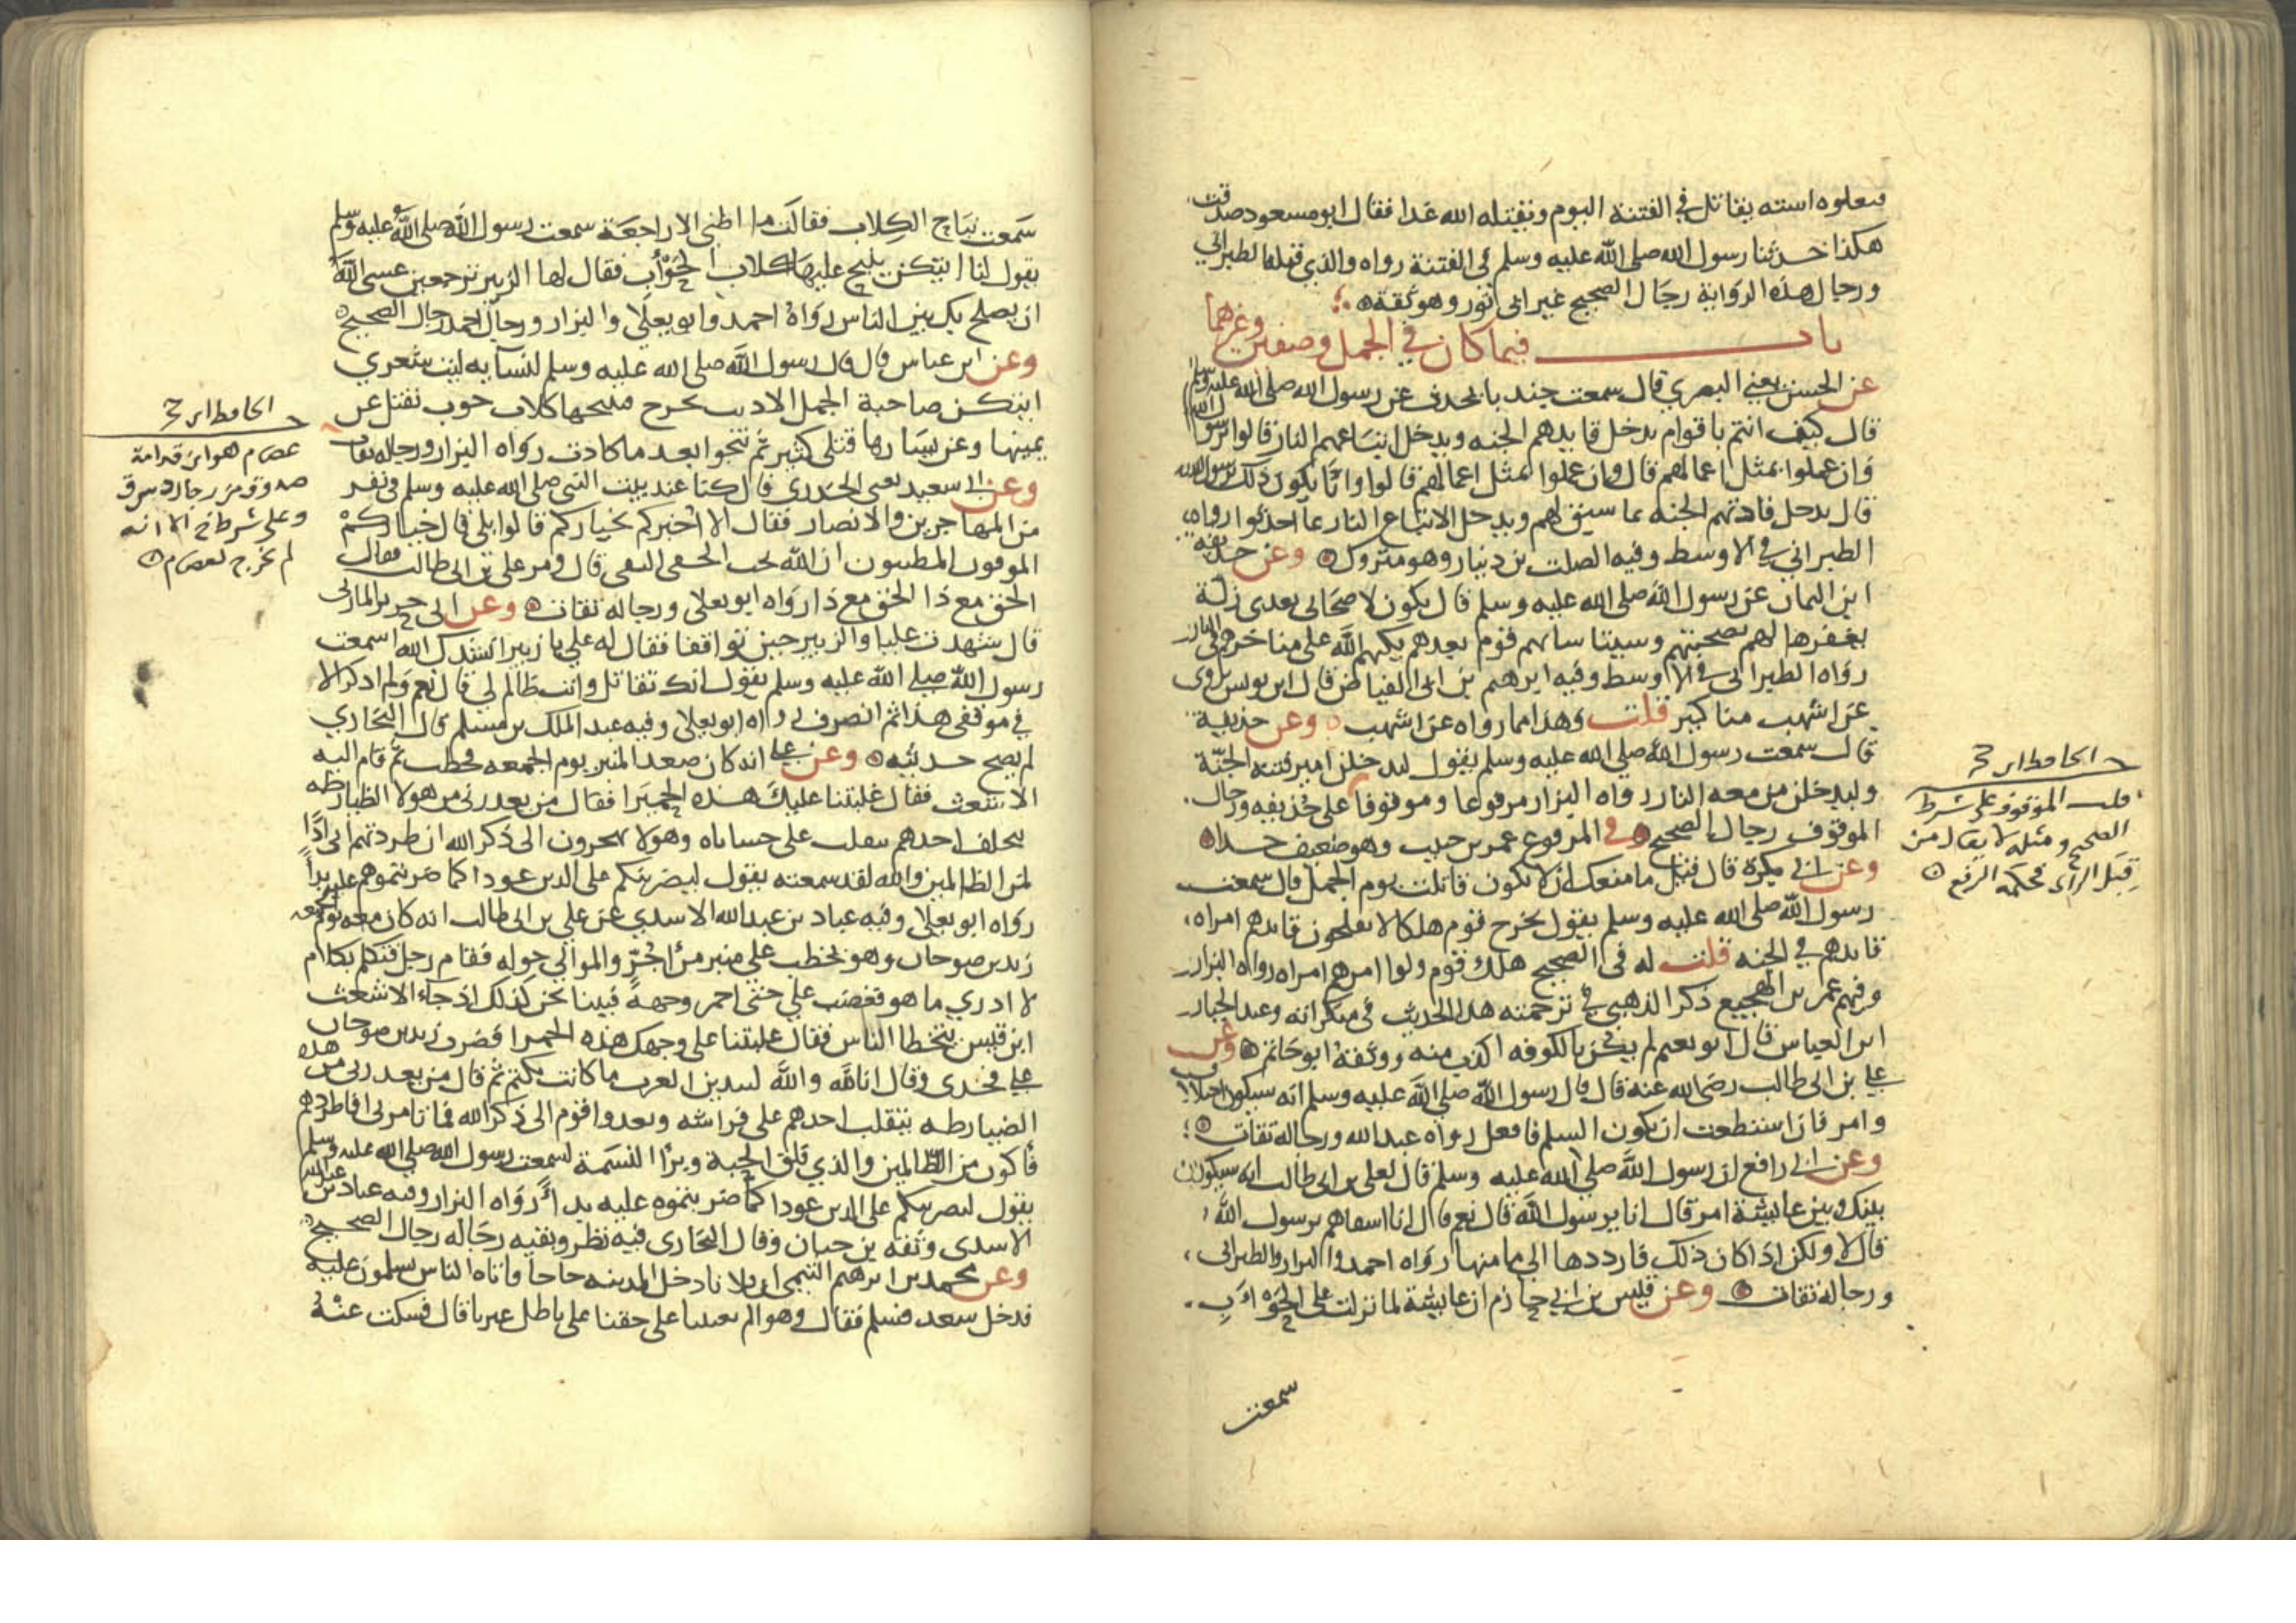 فيعلوه استه يقاتل في الفتنة اليوم ويقتله الله غدا فقال ابو مسعود صدقت
هكذا حدثنا رسول الله صلى الله عليه وسلم في الفتنة رواه والذي قبله الطبراني
ورجال هذه الرواية رجال الصحيح غير ابي ثور وهو ثقة
باب فيما كان في الجمل وصفين وغيرهما
عن الحسن يعني البصري قال سمعت جندبا يحدث عن رسول الله صلى الله عليه وسلم
قال كيف انتم باقوام يدخل قايدهم الجنه ويدخل اتباعهم النار قالوا يرسول الله
وان عملوا بمثل اعمالهم قال وان عملوا بمثل اعمالهم قالوا وانا يكون ذلك يرسول الله
قال يدخل قادتهم الجنه بما سبق لهم ويدخل الاتباع النار بما احدثوا رواه
الطبراني في الاوسط وفيه الصلت بن دينار وهو متروك وعن حذيفه
ابن اليمان عن رسول الله صلى الله عليه وسلم قال يكون لاصحابي بعدي زلة
يغفرها لهم بصحبتهم وسيتاسابهم قوم بعدهم يكبهم الله على مناخرهم في النار
رواه الطبراني في الاوسط وفيه ابرهيم بن ابي الفياض قال ابن يونس يروى
عن اشهب مناكير قلت وهذا مما رواه عن اشهب وعن حذيفة
قال سمعت رسول الله صلى الله عليه وسلم يقول ليدخلن امير فتنة الجنة
وليدخلن من معه النار رواه البزار مرفوعا وموقوفا على حذيفه ورجال
الموقوف رجال الصحيح وفي المرفوع عمر بن حبيب وهو ضعيف جدا
وعن ابي بكرة قال قيل ما منعك ان لا تكون قاتلت يوم الجمل قال سمعت
رسول الله صلى الله عليه وسلم يقول يخرج قوم هلكا لا يفلحون قايدهم امراه
قايدهم في الجنه قلت له في الصحيح هلك قوم ولوا امرهم امراه رواه البزار
وفيهم عمر بن الهجيع ذكر الذهبي في ترجمته هذا الحديث في منكراته وعبد الجبار
ابن العباس قال ابو نعيم لم يكن بالكوفه اكذب منه ووثقه ابو حاتم وعن
علي بن ابي طالب رضى الله عنه قال قال رسول الله صلى الله عليه وسلم انه سيكون اختلاف
وامر فان استطعت ان يكون السلم فافعل رواه عبد الله ورجاله ثقات
وعن ابي رافع ان رسول الله صلى الله عليه وسلم قال لعلي بن ابي طالب انه سيكون
بينك وبين عايشة امر قال انا يرسول الله قال نعم قال انا اشقاهم يرسول الله
قال لا ولكن اذا كان ذلك فارددها الى مامنها رواه احمد والبزار والطبراني
ورجاله ثقات وعن قيس بن ابي حازم ان عايشة لما نزلت على الحوأب
سمعت
الحافظ ابن حجر
قلت الموقوف على شرط
الصحيح ومثله لا يقال من
قبل الراى فحكمه الرفع
سمعت نباح الكلاب فقالت ما اظنني الا راجعة سمعت رسول الله صلى الله عليه وسلم
يقول لنا ايتكن ينبح عليها كلاب الحوأب فقال لها الزبير ترجعين عسى الله
ان يصلح بك بين الناس رواه احمد وابو يعلى والبزار ورجال احمد رجال الصحيح
وعن ابن عباس قال قال رسول الله صلى الله عليه وسلم لنسايه ليت شعري
ايتكن صاحبة الجمل الادبب تخرح فينبحها كلاب حوب يقتل عن
يمينها وعن يسارها قتلى كثير ثم تنجوا بعد ما كادت رواه البزار ورجاله ثقات
وعن ابي سعيد يعني الخدري قال كنا عند بيت النبي صلى الله عليه وسلم في نفر
من المهاجرين والانصار فقال الا اخبركم بخياركم قالوا بلى قال خياركم
الموفون المطيبون ان الله يحب الخفي التقي قال ومر علي بن ابي طالب فقال
الحق مع ذا الحق مع ذا رواه ابو يعلى ورجاله ثقات وعن ابي جرير المازني
قال شهدت عليا والزبير حين تواقفا فقال له علي يا زبير انشدك الله اسمعت
رسول الله صلى الله عليه وسلم يقول انك تقاتل وانت ظالم لي قال نعم ولم اذكر الا
في موقفي هذا ثم انصرف رواه ابو يعلى وفيه عبد الملك بن مسلم قال البخاري
لم يصح حديثه وعن علي انه كان صعد المنبر يوم الجمعه فخطب ثم قام اليه
الاشعث فقال غلبتنا عليك هذه الحميرا فقال من يعذرني من هولا الضيارطه
يتخلف احدهم يتقلب على حشاياه وهولا يهجرون الى ذكر الله ان طردتهم اني اذا
لمن الظالمين والله لقد سمعته يقول ليضربنكم على الدين عودا كما ضربتموهم عليه بدأ
رواه ابو يعلى وفيه عباد بن عبد الله الاسدي عن علي بن ابي طالب انه كان معه يوم الجمعه
زيد بن صوحان وهو يخطب على منبر من اجر والموالي حوله فقام رجل فتكلم بكلام
لا ادري ما هو فغضب علي حتى احمر وجهه فبينا نحن كذلك اذ جاء الاشعث
ابن قيس يتخطا الناس فقال غلبتنا على وجهك هذه الحمرا فضرب زيد بن صوحان
على فخذى وقال انا لله والله لتبدين العرب ما كانت تكتم ثم قال من يعذرني من هذه
الضيارطه يتقلب احدهم على فراشه ويغدوا قوم الى ذكر الله فما تامرني افاطردهم
فاكون من الظالمين والذي فلق الحبة وبرأ النسمة لسمعت رسول الله صلى الله عليه وسلم
يقول ليضربنكم على الدين عودا كما ضربتموه عليه بدأ رواه البزار وفيه عباد بن عبد الله
الاسدى وثقه بن حبان وقال البخارى فيه نظر وبقيه رجاله رجال الصحيح
وعن محمد بن ابرهيم التيمي ان فلانا دخل المدينه حاجا فاتاه الناس يسلمون عليه
فدخل سعد فسلم فقال وهو الم يعننا على حقنا على باطل غيرنا قال فسكت عنه
الحافظ ابن حجر
عصام هو ابن قدامة
صدوق من رجال د س ق
وعلى شرط خ الا انه
لم يخرج لعصام